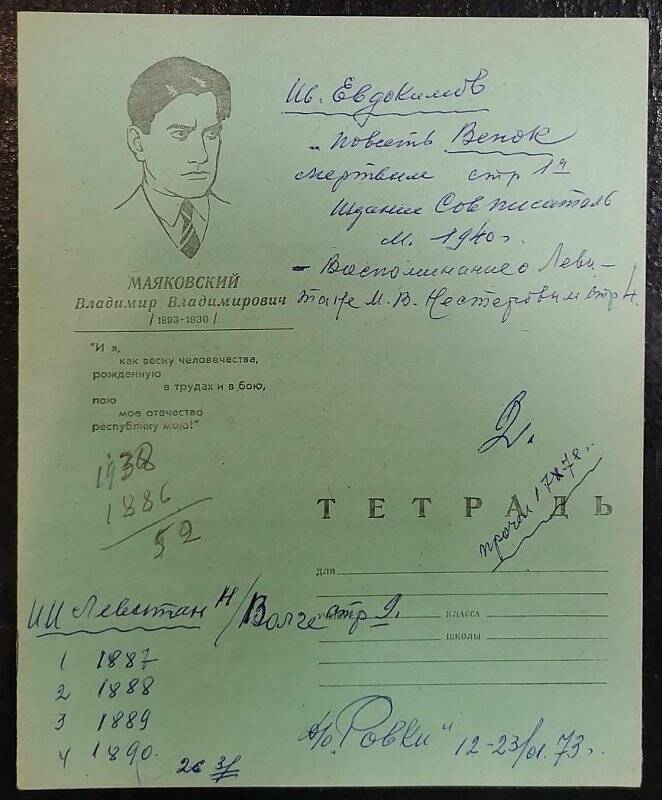 Ив. Евдокимов
„Повесть Венок
мертвым стр 1я
Издание Совписатель
м. 1940 г.
- Воспоминание о Леви-
тане М. В. Нестеровым стр 4.
МАЯКОВСКИЙ
Владимир Владимирович
/ 1893-1930 /
"И я,
как весну человечества,
рожденную
в трудах и в бою,
пою
мое отечество
республику мою!"
1938
1886
52
2.
ТЕТРАДЬ
прочел 17 78 г.
для
КЛАССА
ШКОЛЫ
ИИ Левитан н/Волге стр 9.
1 1887
2 1888
3 1889
4 1890.
"Ровки" 12-23/01.73 г.